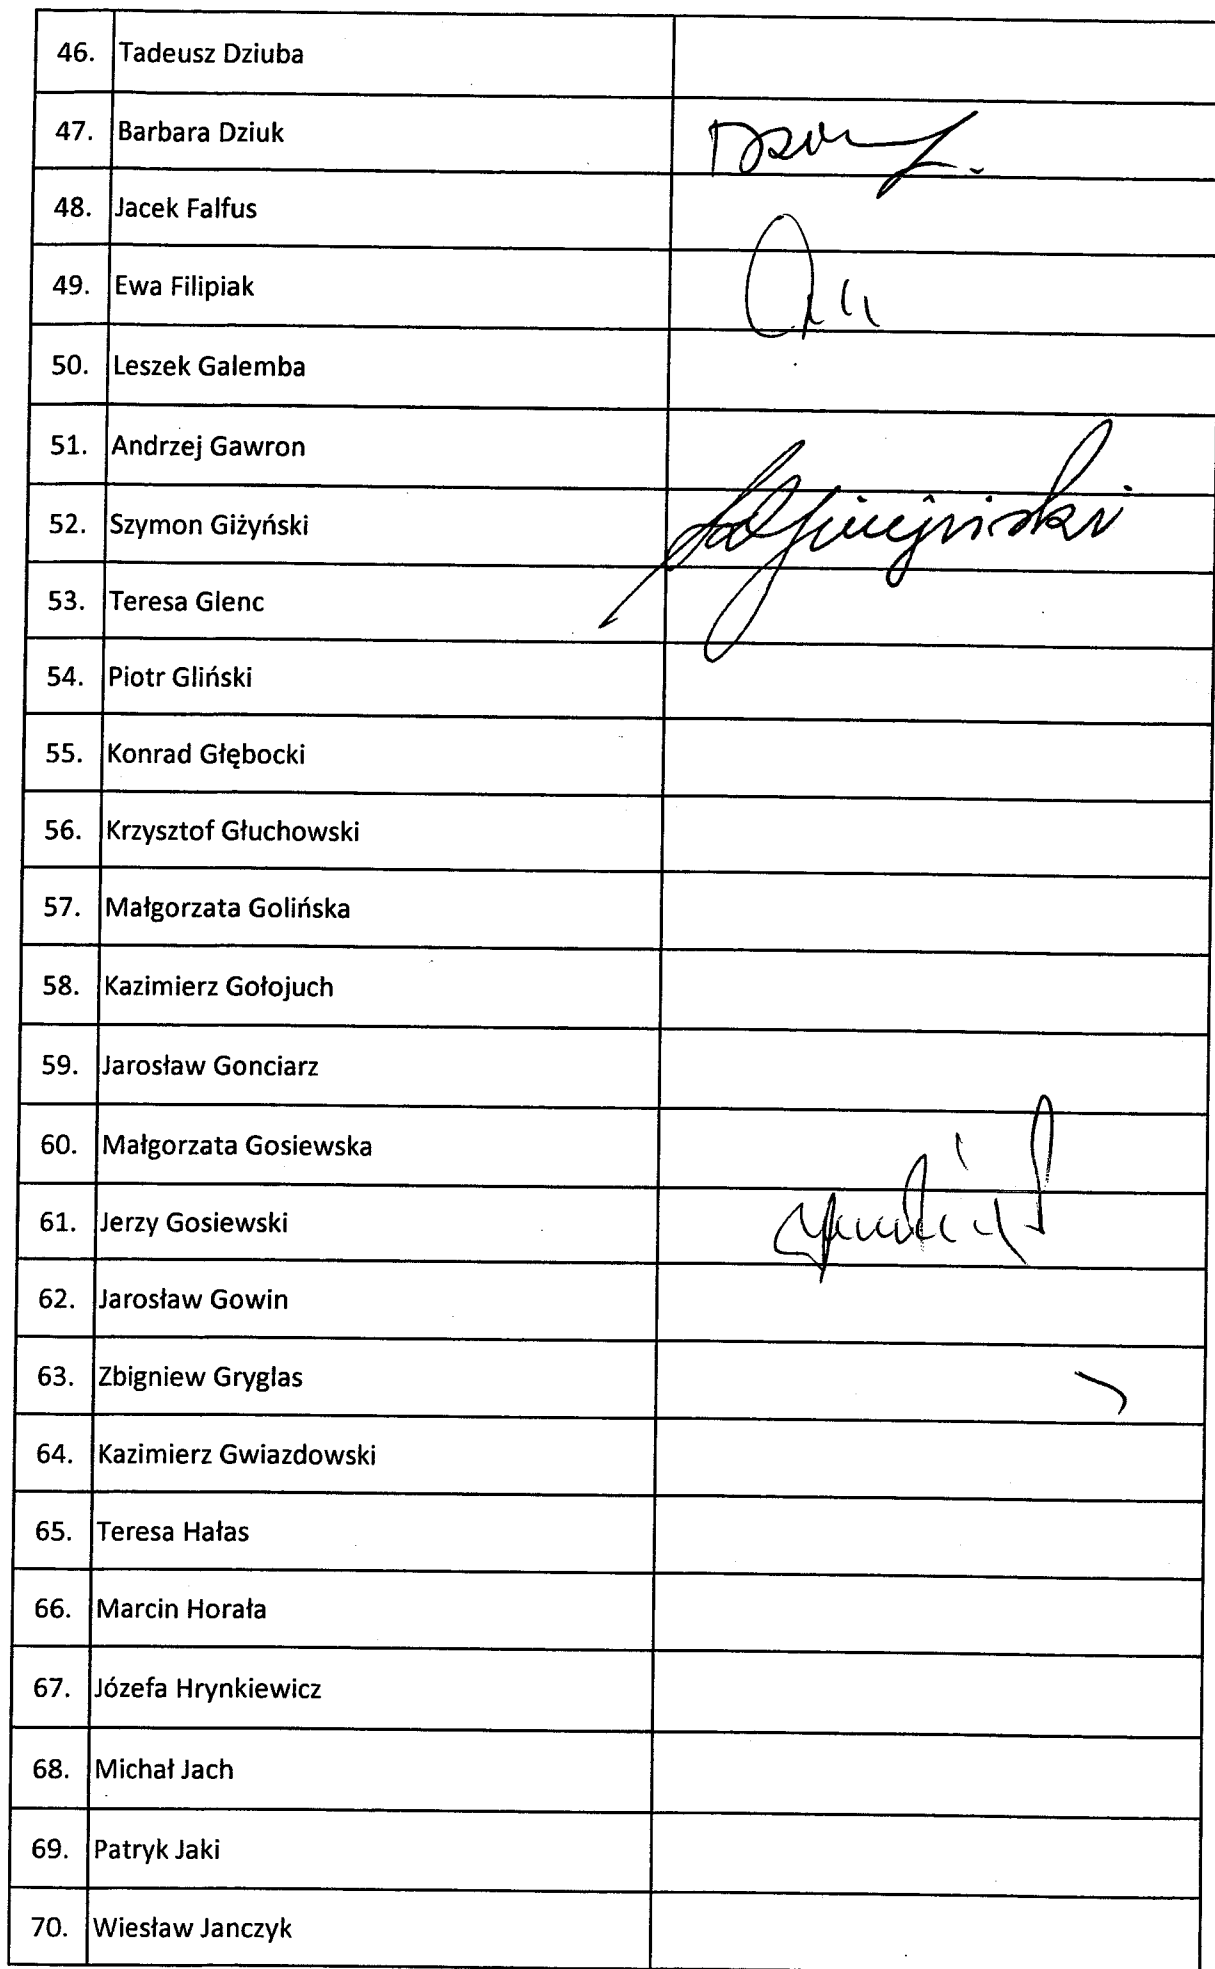 46. Tadeusz Dziuba
47. Barbara Dziuk
48. Jacek Falfus
49. Ewa Filipiak
50. Leszek Galemba
51. Andrzej Gawron
52. Szymon Giżyński
53. Teresa Glenc
54. Piotr Gliński
55. Konrad Głębocki
56. Krzysztof Głuchowski
57. Małgorzata Golińska
58. Kazimierz Gołojuch
59. Jarosław Gonciarz
60. Małgorzata Gosiewska
61. Jerzy Gosiewski
62. Jarosław Gowin
63. Zbigniew Gryglas
64. Kazimierz Gwiazdowski
65. Teresa Hałas
66. Marcin Horała
67. Józefa Hrynkiewicz
68. Michał Jach
69. Patryk Jaki
70. Wiesław Janczyk